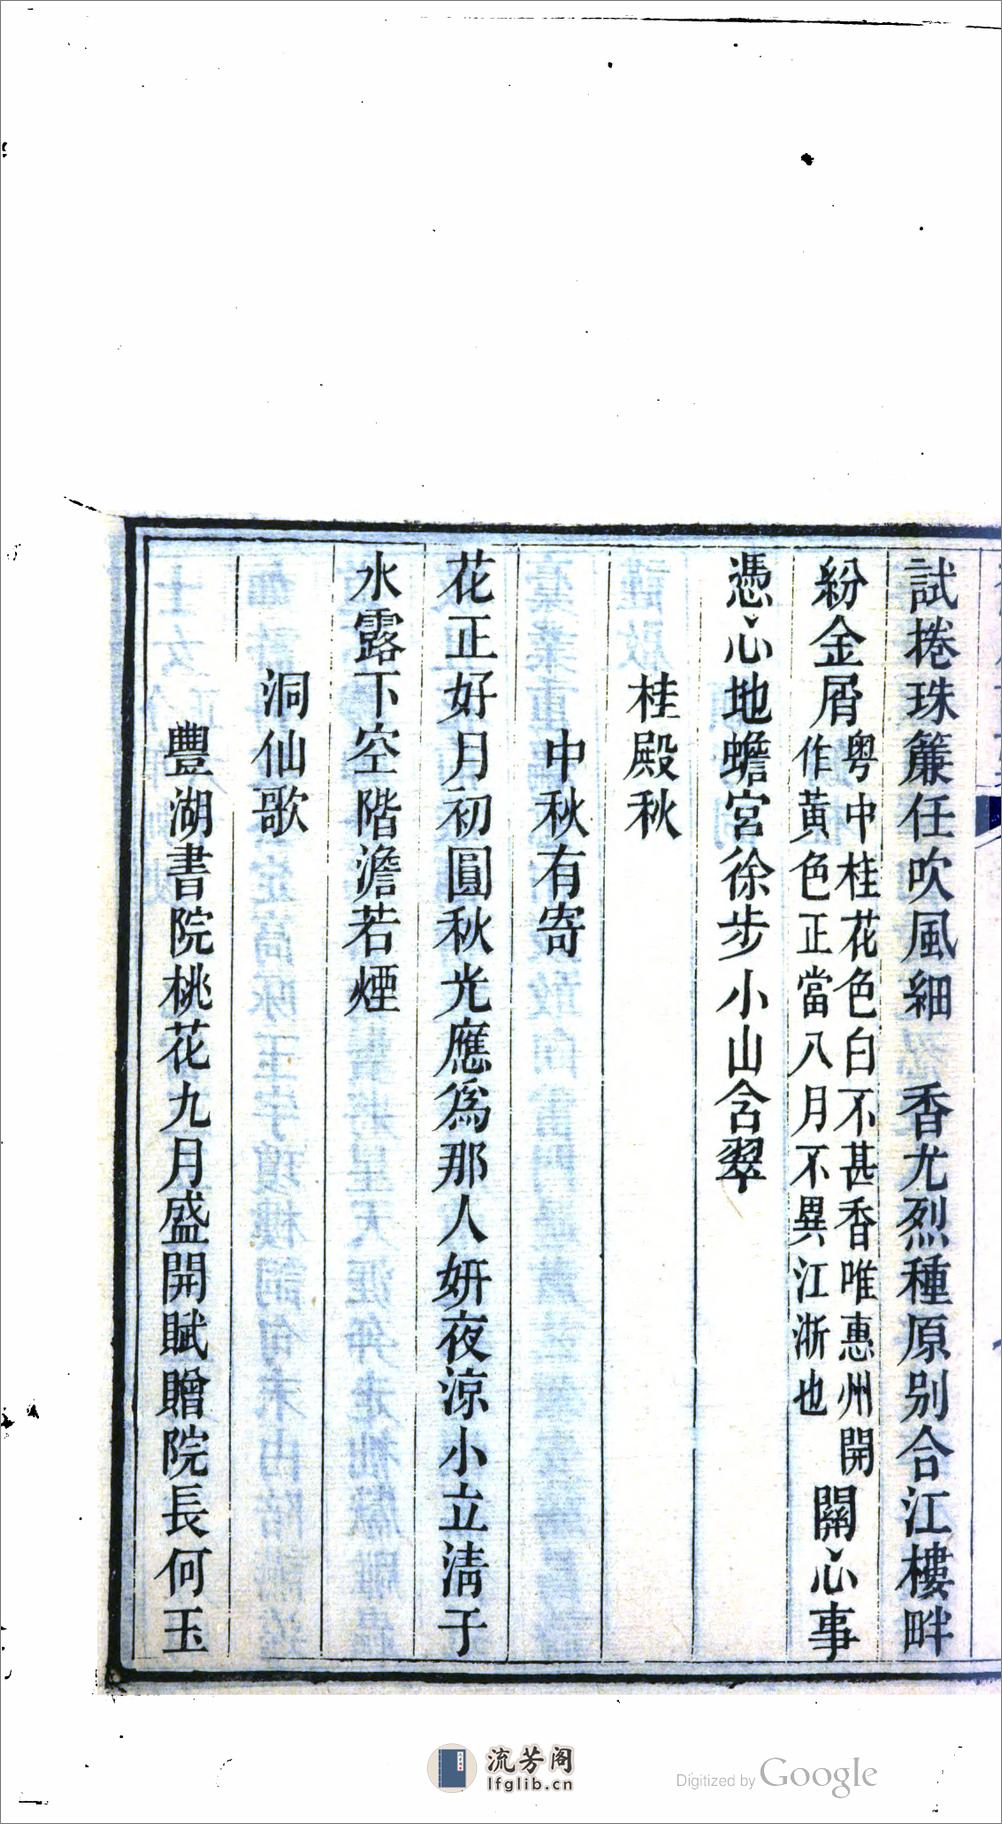 試捲珠簾任吹風細　香尤烈種原别合江樓畔
紛金屑粤中桂花色白不甚香唯惠州開作黃色正當八月不異江浙也關心事
憑心地蟾宮徐步小山含翠
桂殿秋
中秋有寄
花正好月初圓秋光應爲那人妍夜涼小立淸于
水露下空階澹若煙
洞仙歌
豐湖書院桃花九月盛開賦贈院長何玉
流芳阁
lfglib.cn
Digitized by Google